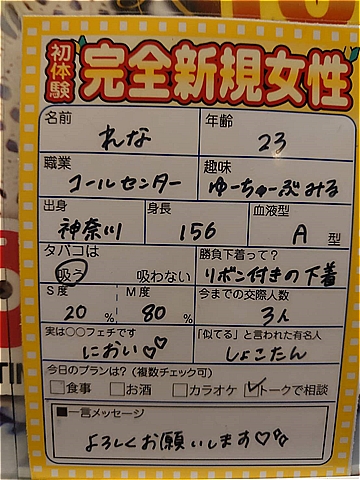 初体験 完全新規女性
名前 れな 年齢 23
職業 コールセンター 趣味 ゆーちゅーぶみる
出身 神奈川 身長 156 血液型 A 型
タバコは 吸う 吸わない 勝負下着って? リボン付きの下着
S度 20 % M度 80 % 今までの交際人数 3人
実は〇〇フェチです におい♡♡ 「似てる」と言われた有名人 しょこたん
今日のプランは?(複数チェック可)
□食事 □お酒 □カラオケ ☑トークで相談
■一言メッセージ
よろしくお願いします♡♡